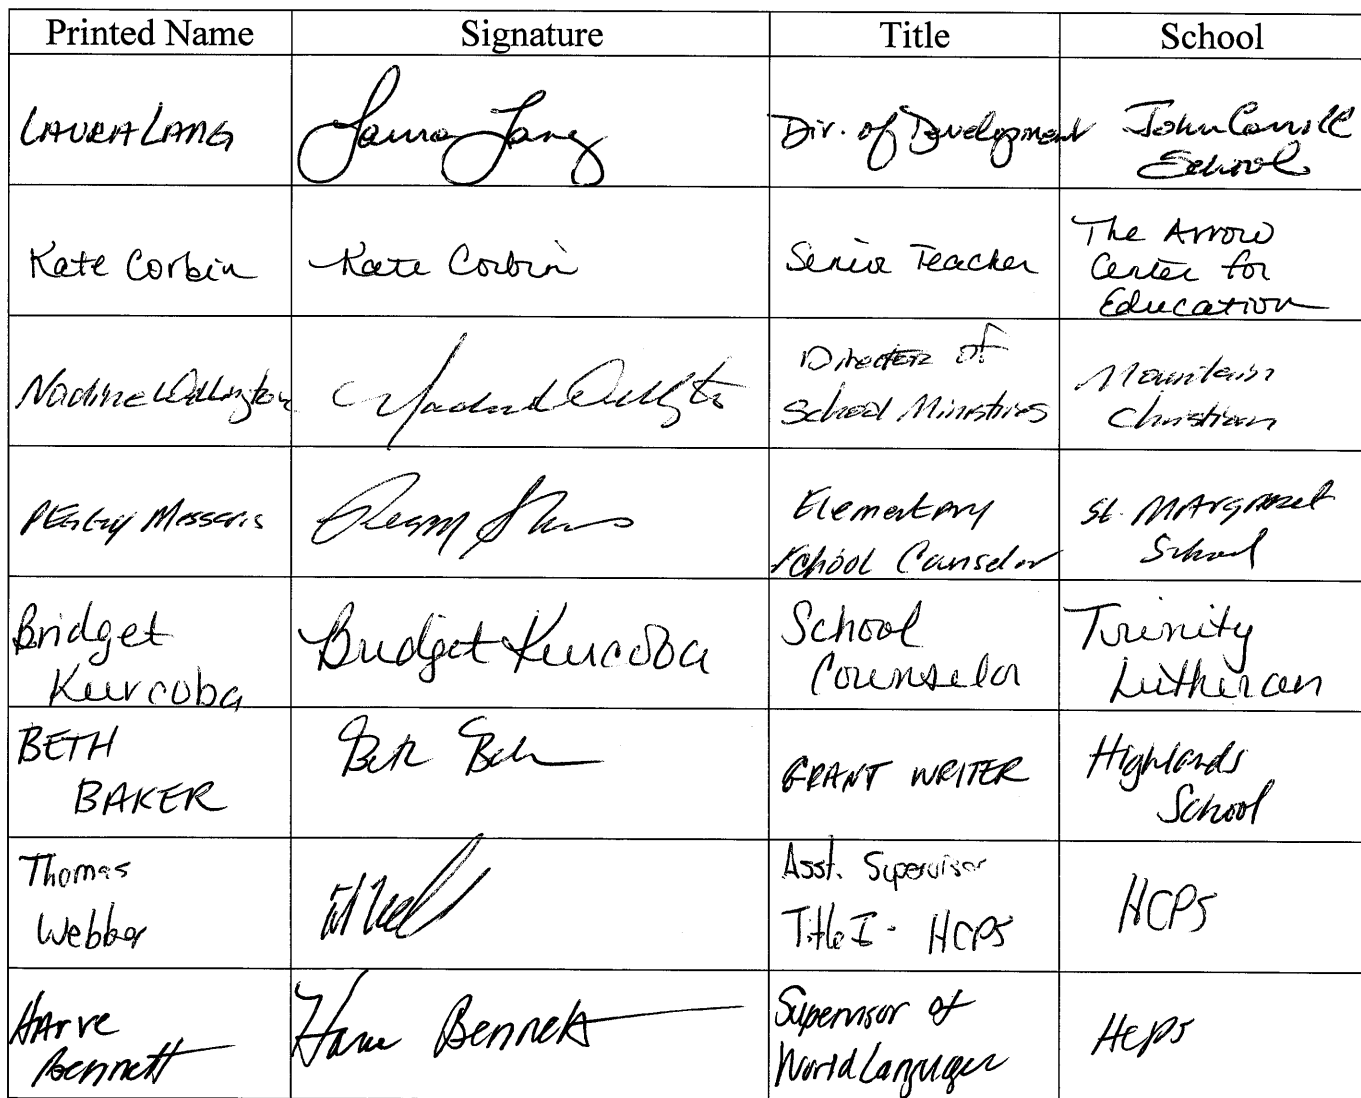 Printed Name Signature Title School
LAURA LANG Laura Lang Div. of Development John Carroll
School
Kate Corbin Kate Corbin Senior Teacher The Arrow
Center for
Education
Nadine Wellington Director of
School Ministries Mountain
Christian
Peggy Messaris Elementary
School Counselor St. Margaret
School
Bridget
Kurcoba Bridget Kurcoba School
Counselor Trinity
Lutheran
BETH
BAKER Beth GRANT WRITER Highlands
School
Thomas
Webber Asst. Supervisor
Title I - HCPS HCPS
Harve
Bennett Harve Bennett Supervisor of
World Languages HCPS